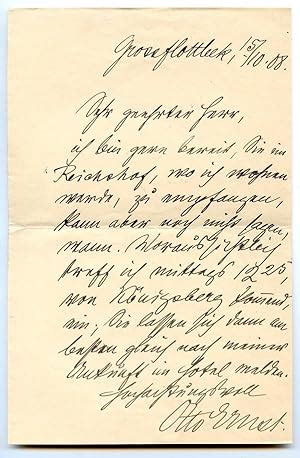 Grossflottbek, 15/10.08.
Sehr geehrter Herr,
ich bin gern bereit, Sie im
Reichshof, wo ich wohnen
werde, zu empfangen,
kann aber noch nicht sagen,
wann. Voraussichtlich
treff ich mittags 1/2 25,
von Königsberg kommend,
ein; Sie lassen sich dann am
besten gleich nach meiner
Ankunft im Hotel melden.
Hochachtungsvoll
Otto Ernst.